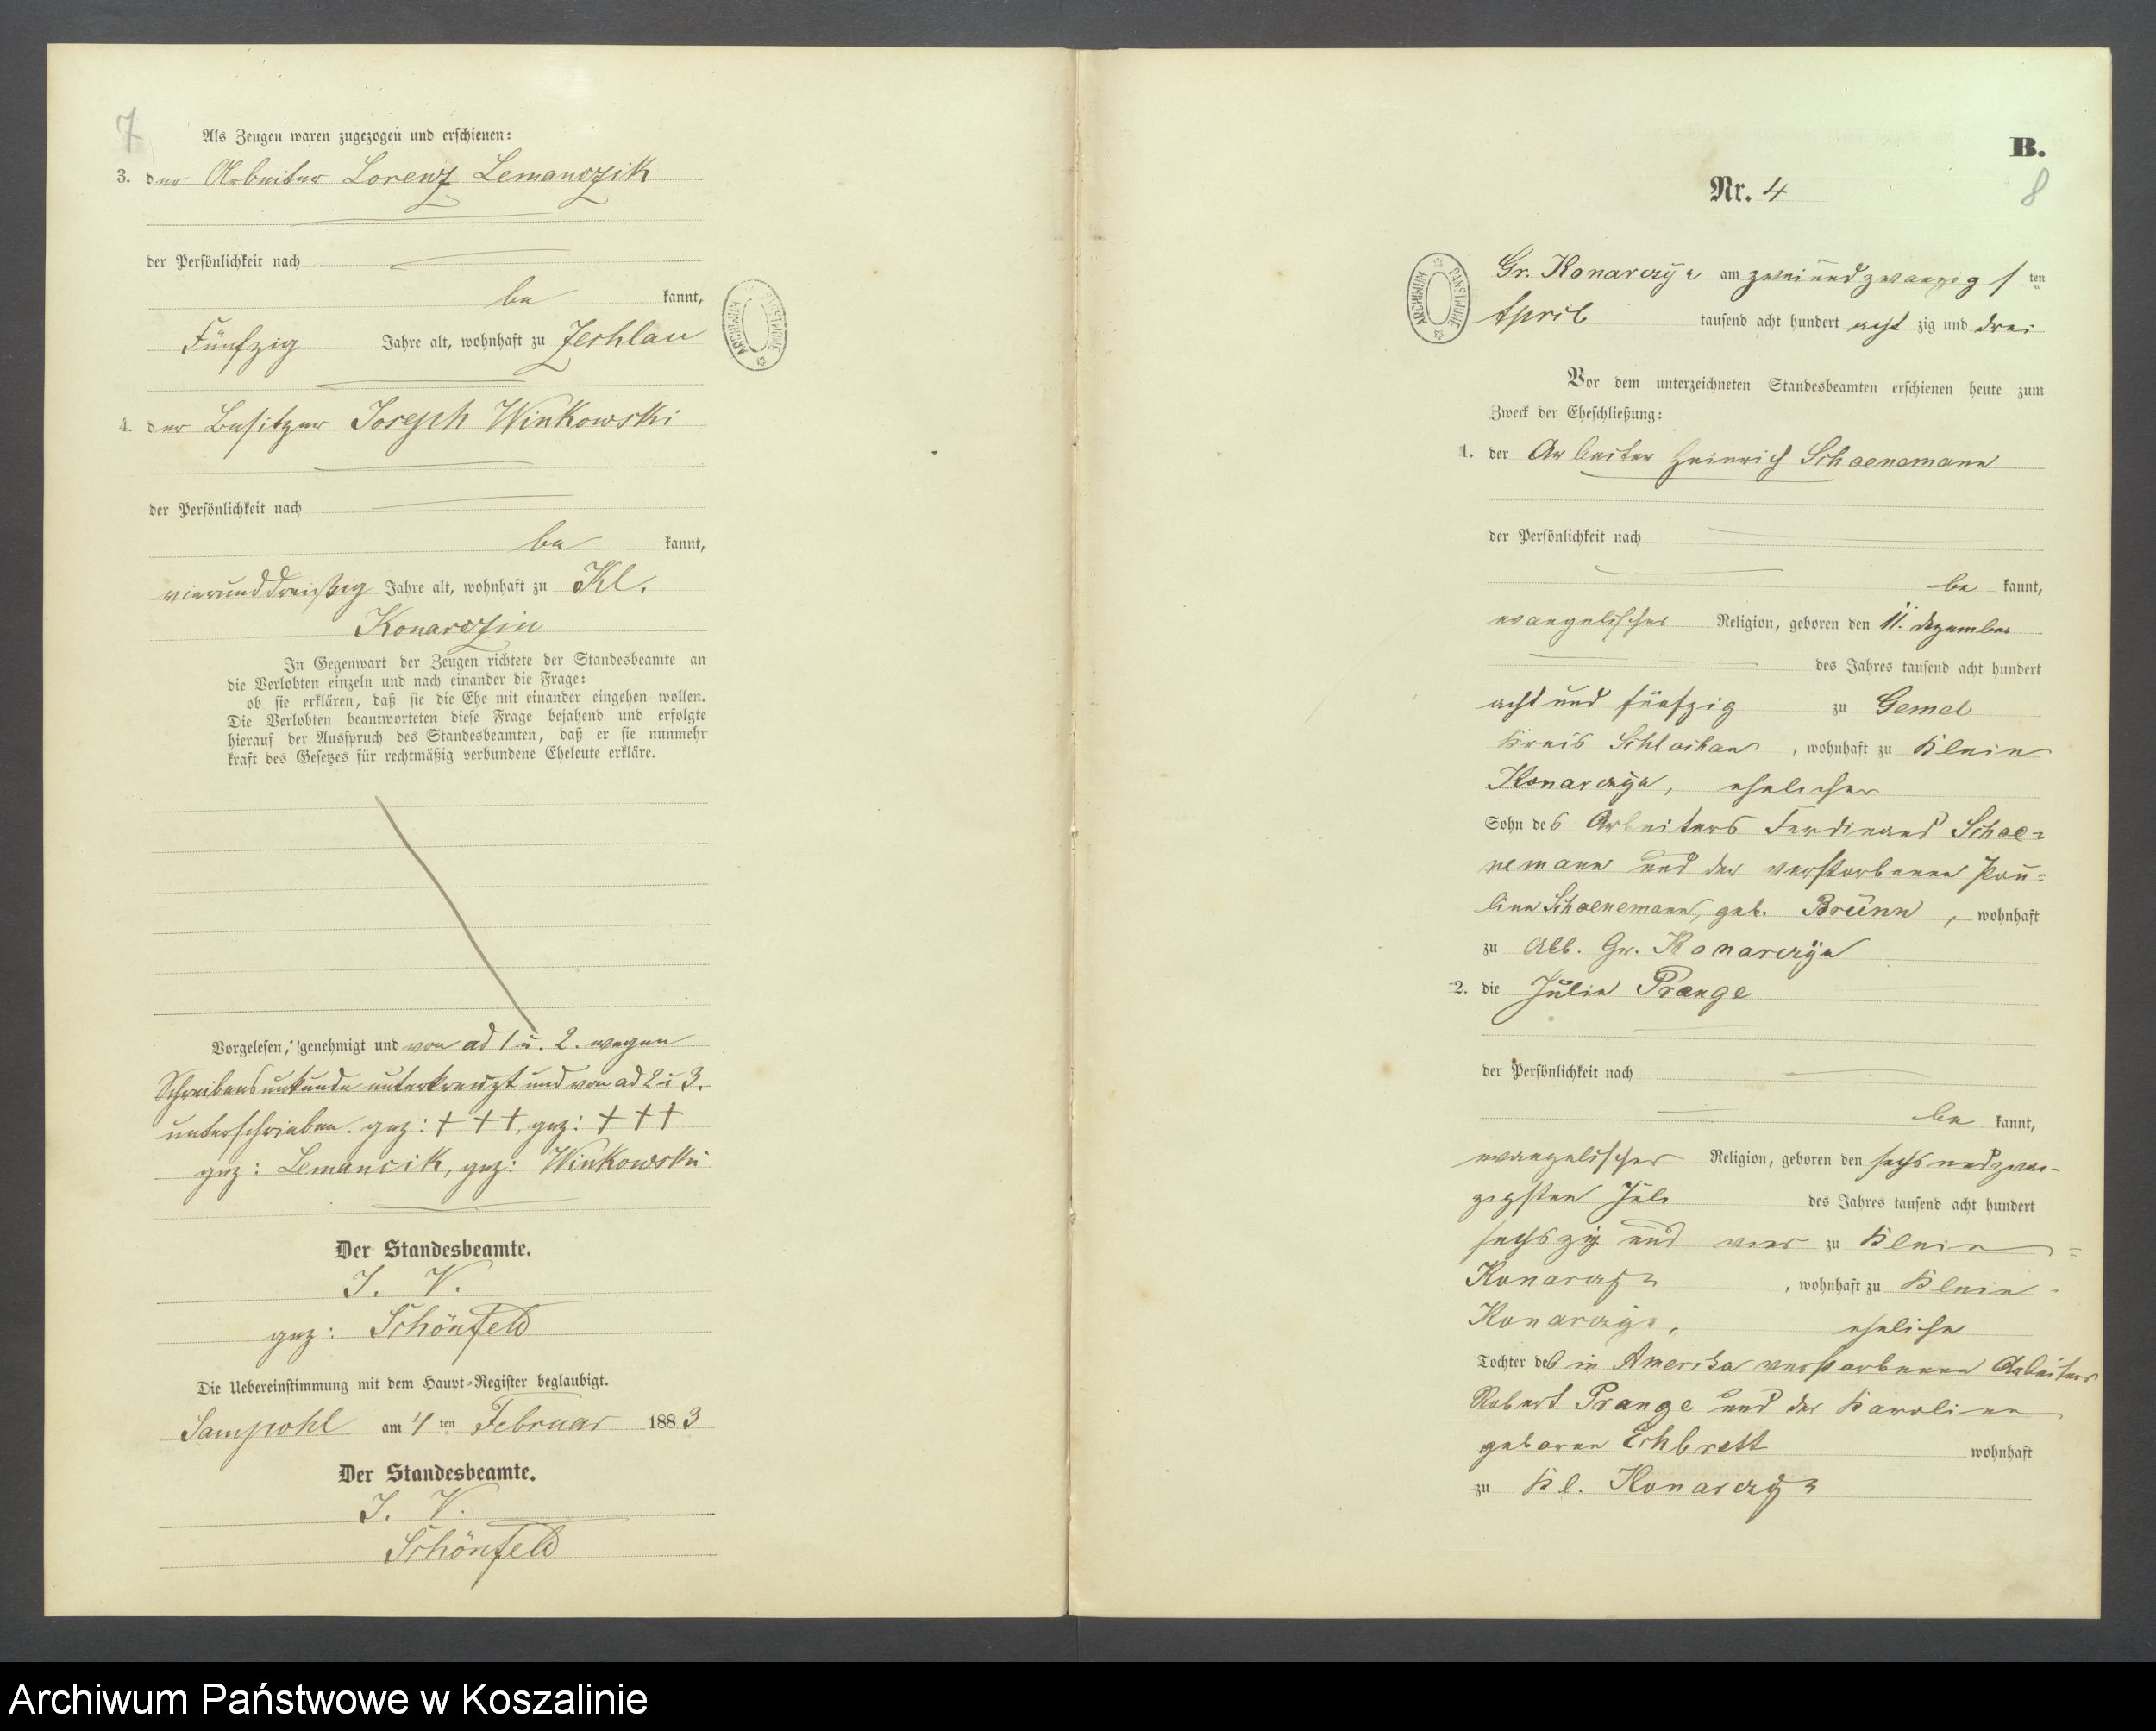 7
Als Zeugen waren zugezogen und erschienen:
3. der Arbeiter Lorenz Lemanczik
der Persönlichkeit nach
be kannt,
Fünfzig Jahre alt, wohnhaft zu Zechlau
4. der Besitzer Joseph Winkowski
der Persönlichkeit nach
be kannt,
vierunddreißig Jahre alt, wohnhaft zu Kl.
Konarczin
In Gegenwart der Zeugen richtete der Standesbeamte an
die Verlobten einzeln und nach einander die Frage:
ob sie erklären, daß sie die Ehe mit einander eingehen wollen.
Die Verlobten beantworteten diese Frage bejahend und erfolgte
hierauf der Ausspruch des Standesbeamten, daß er sie nunmehr
kraft des Gesetzes für rechtmäßig verbundene Eheleute erkläre.
Vorgelesen, genehmigt und von ad 1 u. 2. wegen
Schreibensunkunde unterkreuzt und von ad 2 u 3.
unterschrieben. gez: + + +, gez: + + +
gez: Lemancik, gez: Winkowski
Der Standesbeamte.
I. V.
gez: Schönfeld
Die Uebereinstimmung mit dem Haupt-Register beglaubigt.
Sampohl am 4 ten Februar 1883
Der Standesbeamte.
I. V.
Schönfeld
ARCHIWUM PAŃSTWOWE
B.
8
Nr. 4
ARCHIWUM PAŃSTWOWE
Gr. Konarczye am zweiundzwanzigsten
April tausend acht hundert acht zig und drei
Vor dem unterzeichneten Standesbeamten erschienen heute zum
Zweck der Eheschließung:
1. der Arbeiter Heinrich Schoenemann
der Persönlichkeit nach
be kannt,
evangelischer Religion, geboren den 11. Dezember
des Jahres tausend acht hundert
acht und fünfzig zu Gemel
Kreis Schlochau, wohnhaft zu Klein
Konarczye, ehelicher
Sohn des Arbeiters Ferdinand Schoe=
nemann und der verstorbenen Pau=
line Schoenemann, geb. Brünn, wohnhaft
zu Abb. Gr. Konarczye
2. die Julie Prange
der Persönlichkeit nach
be kannt,
evangelischer Religion, geboren den sechsundzwan-
zigsten Juli des Jahres tausend acht hundert
sechszig und vier zu Klein=
Konarczye, wohnhaft zu Klein-
Konarczye, eheliche
Tochter des in Amerika verstorbenen Arbeiters
Robert Prange und der Karoline
geborene Echbrett wohnhaft
zu Kl. Konarczye
Archiwum Państwowe w Koszalinie